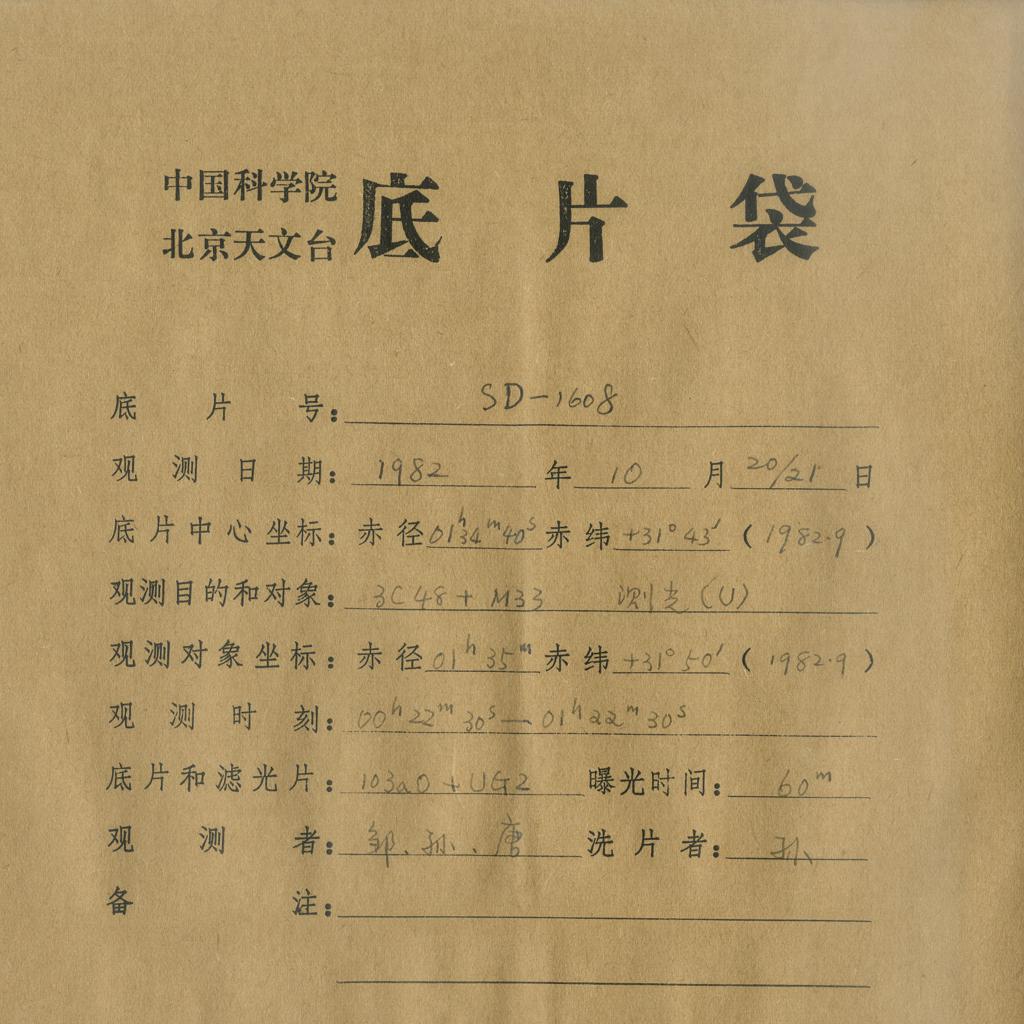 中国科学院
北京天文台
底片袋
底片号：SD-1608
观测日期：1982年10月20/21日
底片中心坐标：赤径01ʰ34ᵐ40ˢ赤纬+31°43′（1982.9）
观测目的和对象：3C48+M33 测光(U)
观测对象坐标：赤径01ʰ35ᵐ赤纬+31°50′（1982.9）
观测时刻：00ʰ22ᵐ30ˢ—01ʰ22ᵐ30ˢ
底片和滤光片：103aO+UG2 曝光时间：60ᵐ
观测者：邹、孙、唐 洗片者：孙
备注：